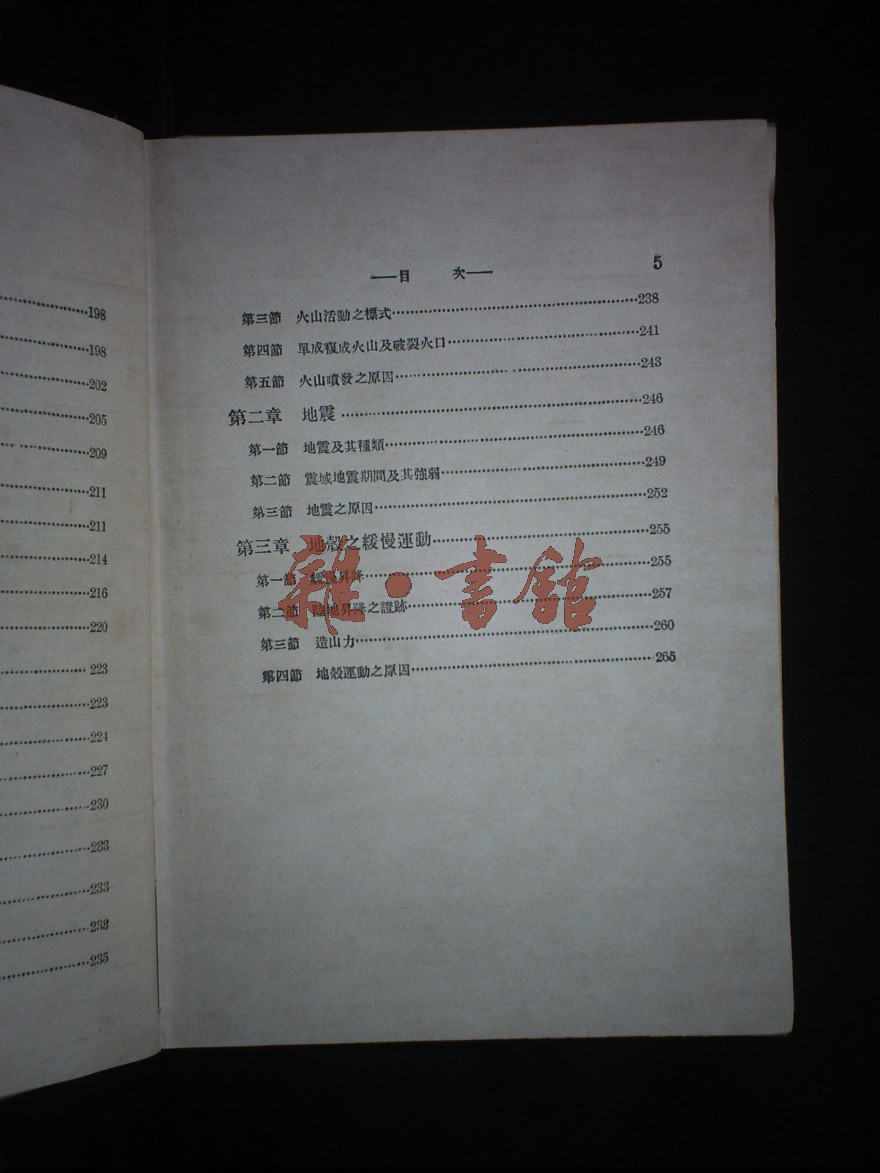 198
198
202
205
209
211
211
214
216
220
223
223
224
227
230
233
233
232
235
——目 次—— 5
第三節 火山活動之標式……238
第四節 單成複成火山及破裂火口……241
第五節 火山噴發之原因……243
第二章 地震……246
第一節 地震及其種類……246
第二節 震域地震期間及其強弱……249
第三節 地震之原因……252
第三章 地殼之緩慢運動……255
第一節 緩慢昇降……255
第二節 陸地昇降之證跡……257
第三節 造山力……260
第四節 地殼運動之原因……265
雜·書館